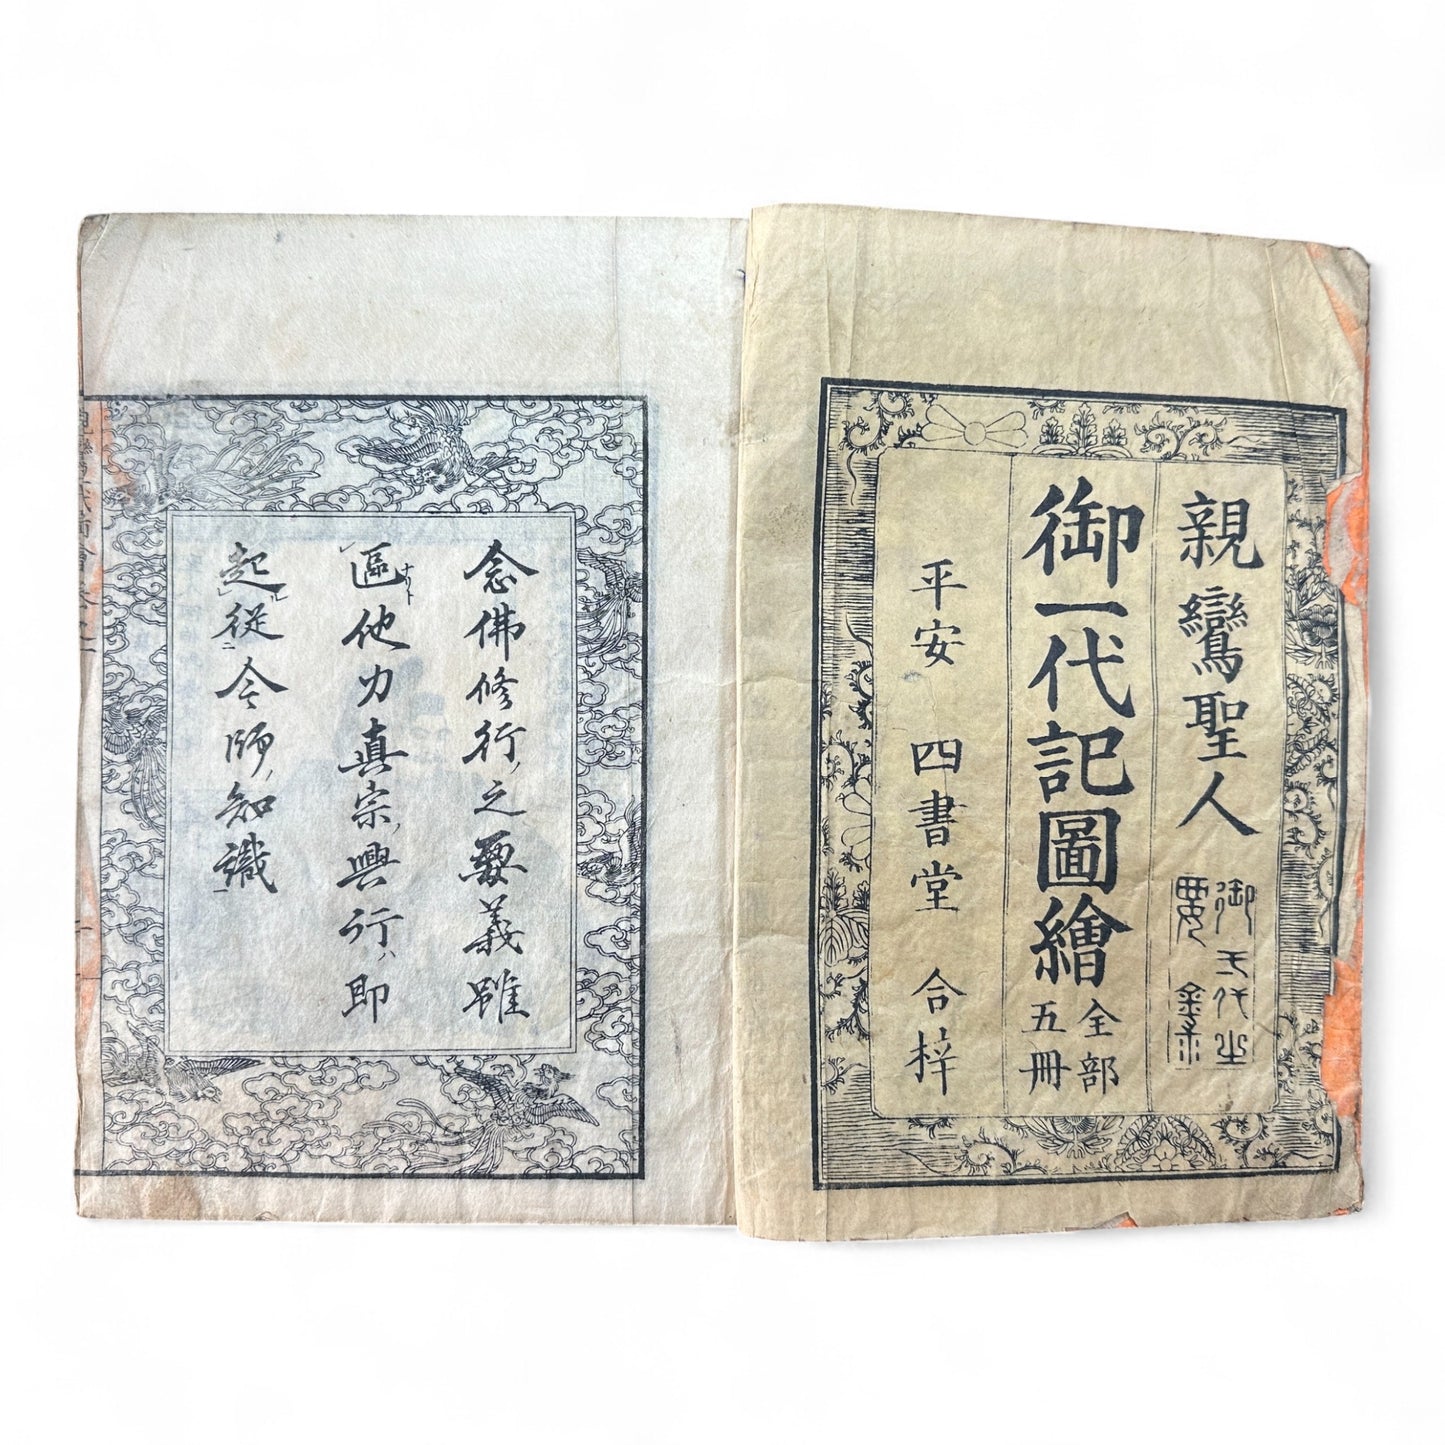 親鸞聖人
御一代記圖繪
全部
五冊
平安 四書堂 合梓
念佛修行之要義雖
區他力真宗興行ハ即
起從今師知識